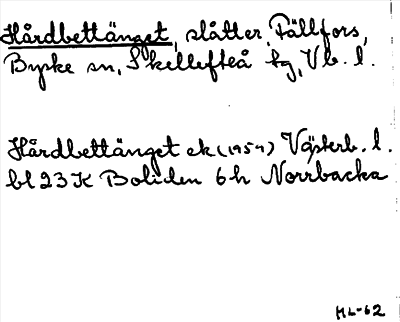 Hårdbettänget, slåtter, Fällfors,
Byske sn, Skellefteå tg, Vb. l.
Hårdbettänget ek (1959) Västerb. l.
bl 23 K Boliden 6 h Norrbacka
HL-62